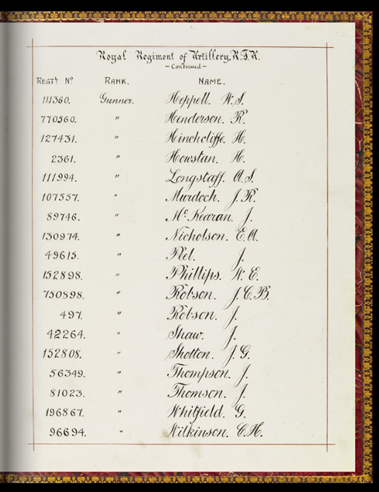 Royal Regiment of Artillery, R.F.A.
- Continued -
REGTL No RANK. NAME.
111360. Gunner. Heppell. W. S.
770560. " Henderson. R.
127431. " Hinchcliffe. H.
2361. " Howstan. H.
111994. " Longstaff. A. S.
107557. " Murdoch. J. R.
89746. " McKearan. J.
130974. " Nicholson. E. A.
49615. " J.
152898. " Phillips. W. E.
750898. " Robson. J. C. B.
497. " Robson. J.
42264. " Shaw. J.
152808. " Shotton. J. G.
56349. " Thompson. J.
81023. " Thomson. J.
196867. " Whitfield. G.
96694. " Wilkinson. C. H.